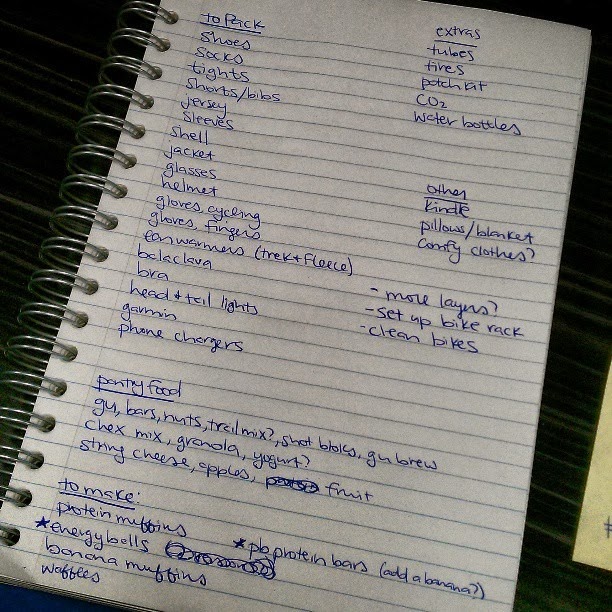 to Pack
shoes
socks
tights
shorts/bibs
jersey
sleeves
shell
jacket
glasses
helmet
gloves, cycling
gloves, fingers
ear warmers (trek + fleece)
balaclava
bra
head + tail lights
garmin
phone chargers
extras
tubes
tires
patch kit
CO2
water bottles
other
kindle
pillows/blanket
comfy clothes?
- more layers?
- set up bike rack
- clean bikes
pantry food
gu, bars, nuts, trail mix?, shot bloks, gu brew
chex mix, granola, yogurt?
string cheese, apples, fruit
to make:
protein muffins
★ energy balls
banana muffins
waffles
★ pb protein bars (add a banana?)